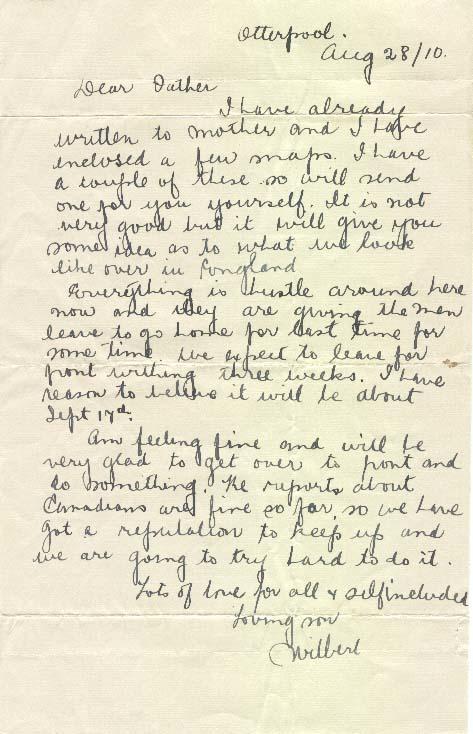 Otterpool.
Aug 28/10.
Dear Father
I have already
written to mother and I have
enclosed a few snaps. I have
a couple of these so will send
one for you yourself. It is not
very good but it will give you
some idea as to what we look
like over in England
Everything is hustle around here
now and they are giving the men
leave to go home for last time for
some time we expect to leave for
front withing three weeks. I have
reason to believe it will be about
Sept 17th.
Am feeling fine and will be
very glad to get over to front and
do something. The reports about
Canadians are fine so far, so we have
got a reputation to keep up and
we are going to try hard to do it.
Lots of love for all & self included
Loving son
Wilbert